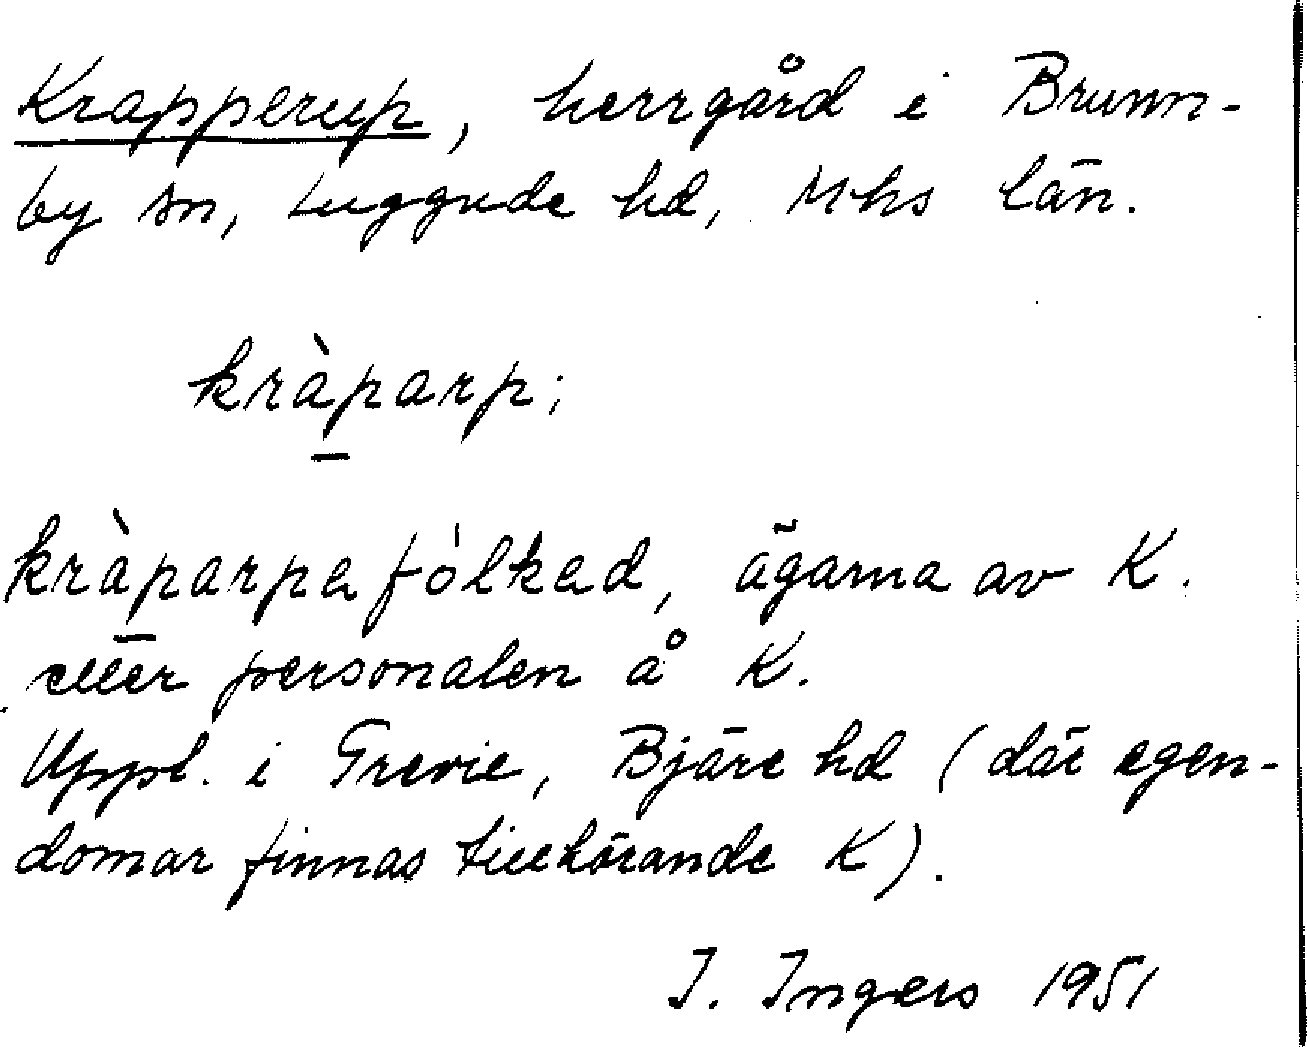 Krapperup, herrgård i Brunn-
by sn, Luggude hd, Mhs län.
kràparp;
kràparpafólkad, ägarna av K.
eller personalen å K.
Uppl. i Grevie, Bjäre hd (där egen-
domar finnas tillhörande K).
I. Ingers 1951